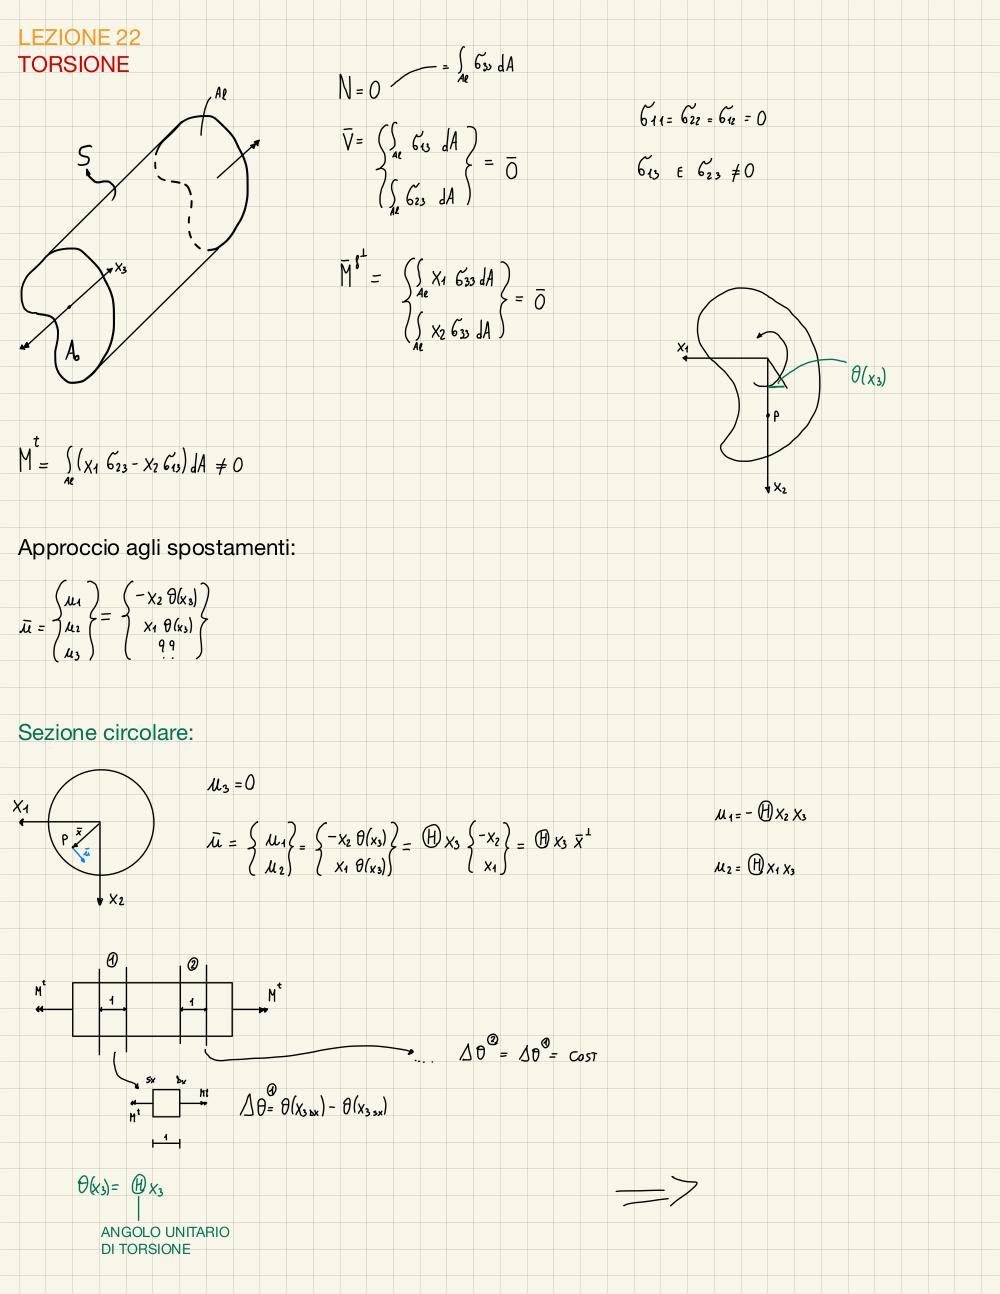 LEZIONE 22
TORSIONE
Aℓ
S
x₃
A₀
N = 0 = ∫_Aℓ σ₃₃ dA
V̄ = { ∫_Aℓ σ₁₃ dA
∫_Aℓ σ₂₃ dA } = 0̄
σ₁₁ = σ₂₂ = σ₁₂ = 0
σ₁₃ E σ₂₃ ≠ 0
M̄^f⊥ = { ∫_Aℓ x₁ σ₃₃ dA
∫_Aℓ x₂ σ₃₃ dA } = 0̄
x₁
θ(x₃)
P
x₂
M^t = ∫_Aℓ (x₁ σ₂₃ - x₂ σ₁₃) dA ≠ 0
Approccio agli spostamenti:
ū = { u₁ u₂ u₃ } = { -x₂ θ(x₃) x₁ θ(x₃) ?? }
Sezione circolare:
x₁
P
x̄
ū
x₂
u₃ = 0
ū = { u₁ u₂ } = { -x₂ θ(x₃) x₁ θ(x₃) } = Ⓗ x₃ { -x₂ x₁ } = Ⓗ x₃ x̄^⊥
u₁ = - Ⓗ x₂ x₃
u₂ = Ⓗ x₁ x₃
① ②
M^t 1 1 M^t
.... Δθ^② = Δθ^① = COST
sx dx
M^t M^t
Δθ^① = θ(x₃ dx) - θ(x₃ sx)
1
θ(x₃) = Ⓗ x₃
ANGOLO UNITARIO
DI TORSIONE